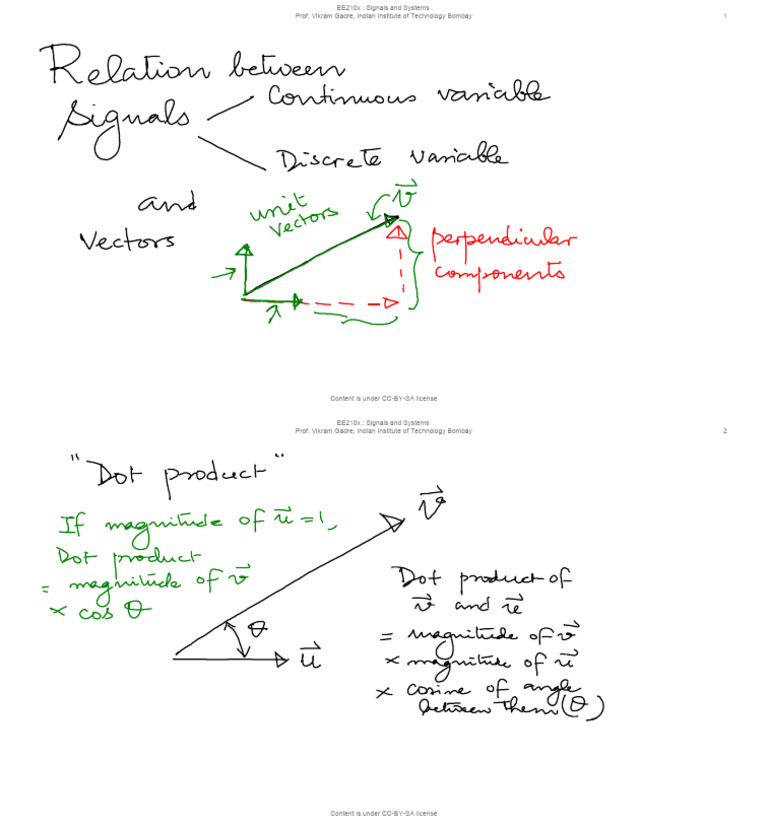 EE210x : Signals and Systems
Prof. Vikram Gadre, Indian Institute of Technology Bombay
1
Relation between
Signals
Continuous variable
Discrete variable
and
Vectors
unit
vectors
v
perpendicular
components
Content is under CC-BY-SA license
EE210x : Signals and Systems
Prof. Vikram Gadre, Indian Institute of Technology Bombay
2
"Dot product"
If magnitude of u⃗ = 1,
Dot product
= magnitude of v⃗
× cos θ
v⃗
θ
u⃗
Dot product of
v⃗ and u⃗
= magnitude of v⃗
× magnitude of u⃗
× cosine of angle
between them (θ)
Content is under CC-BY-SA license